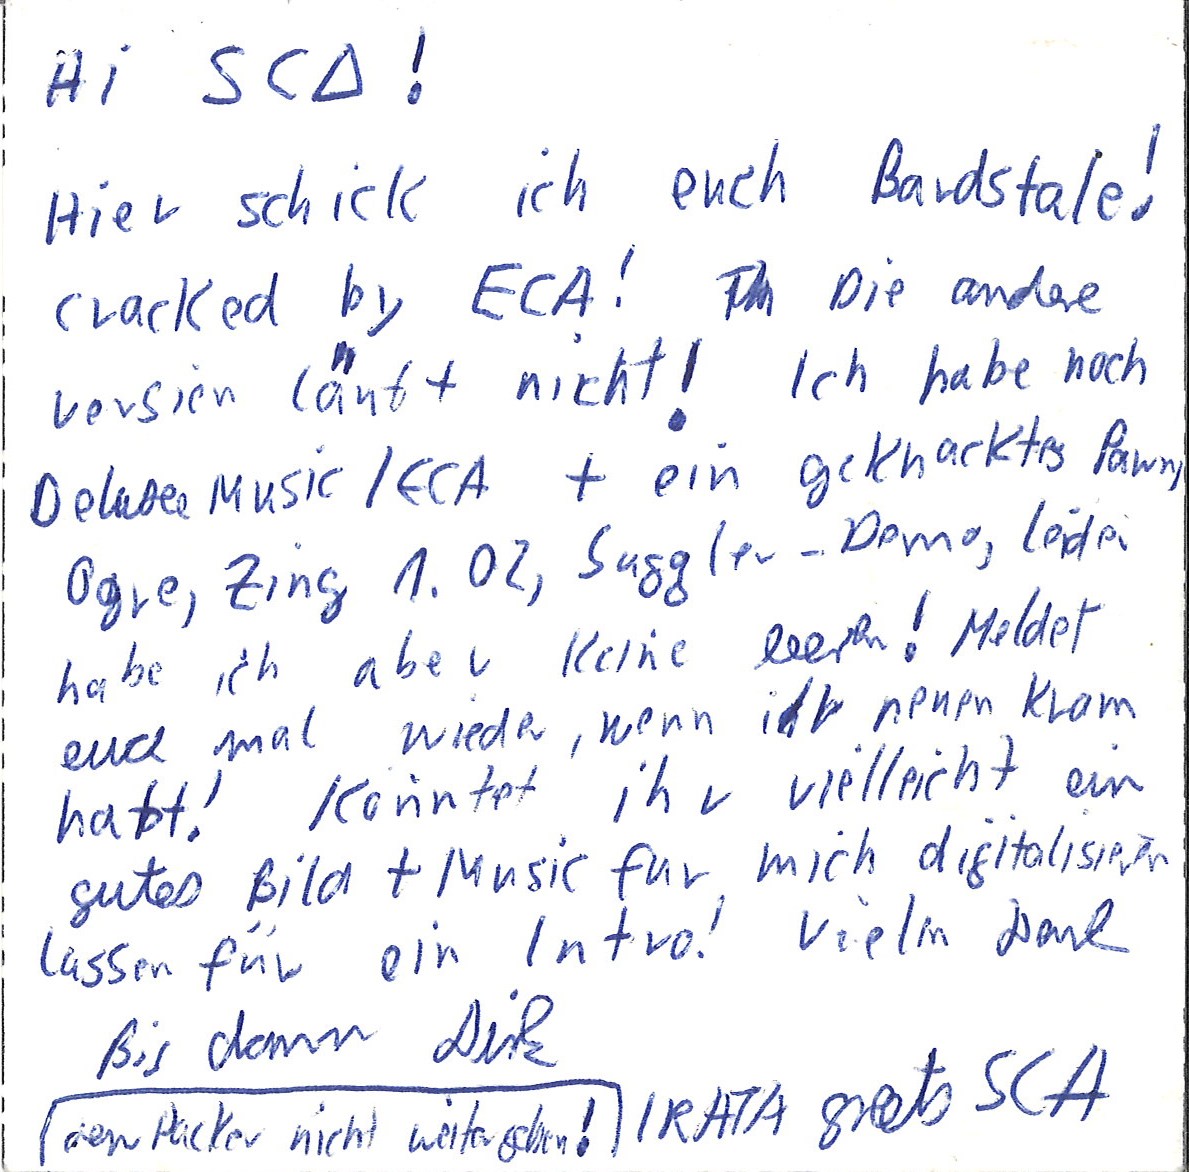 Hi SCA!
Hier schick ich euch Bardstale!
cracked by ECA! Die andere
version läuft nicht! Ich habe noch
Deluxe Music / ECA + ein geknacktes Pawn,
Ogre, Zing 1.02, Juggler-Demo, leider
habe ich aber keine leeren! Meldet
euch mal wieder, wenn ihr neuen Kram
habt! Könntet ihr vielleicht ein
gutes Bild + Music für mich digitalisieren
lassen für ein Intro! Vielen Dank
Bis dann Dirk
den Packer nicht weitergeben! IRATA greets SCA